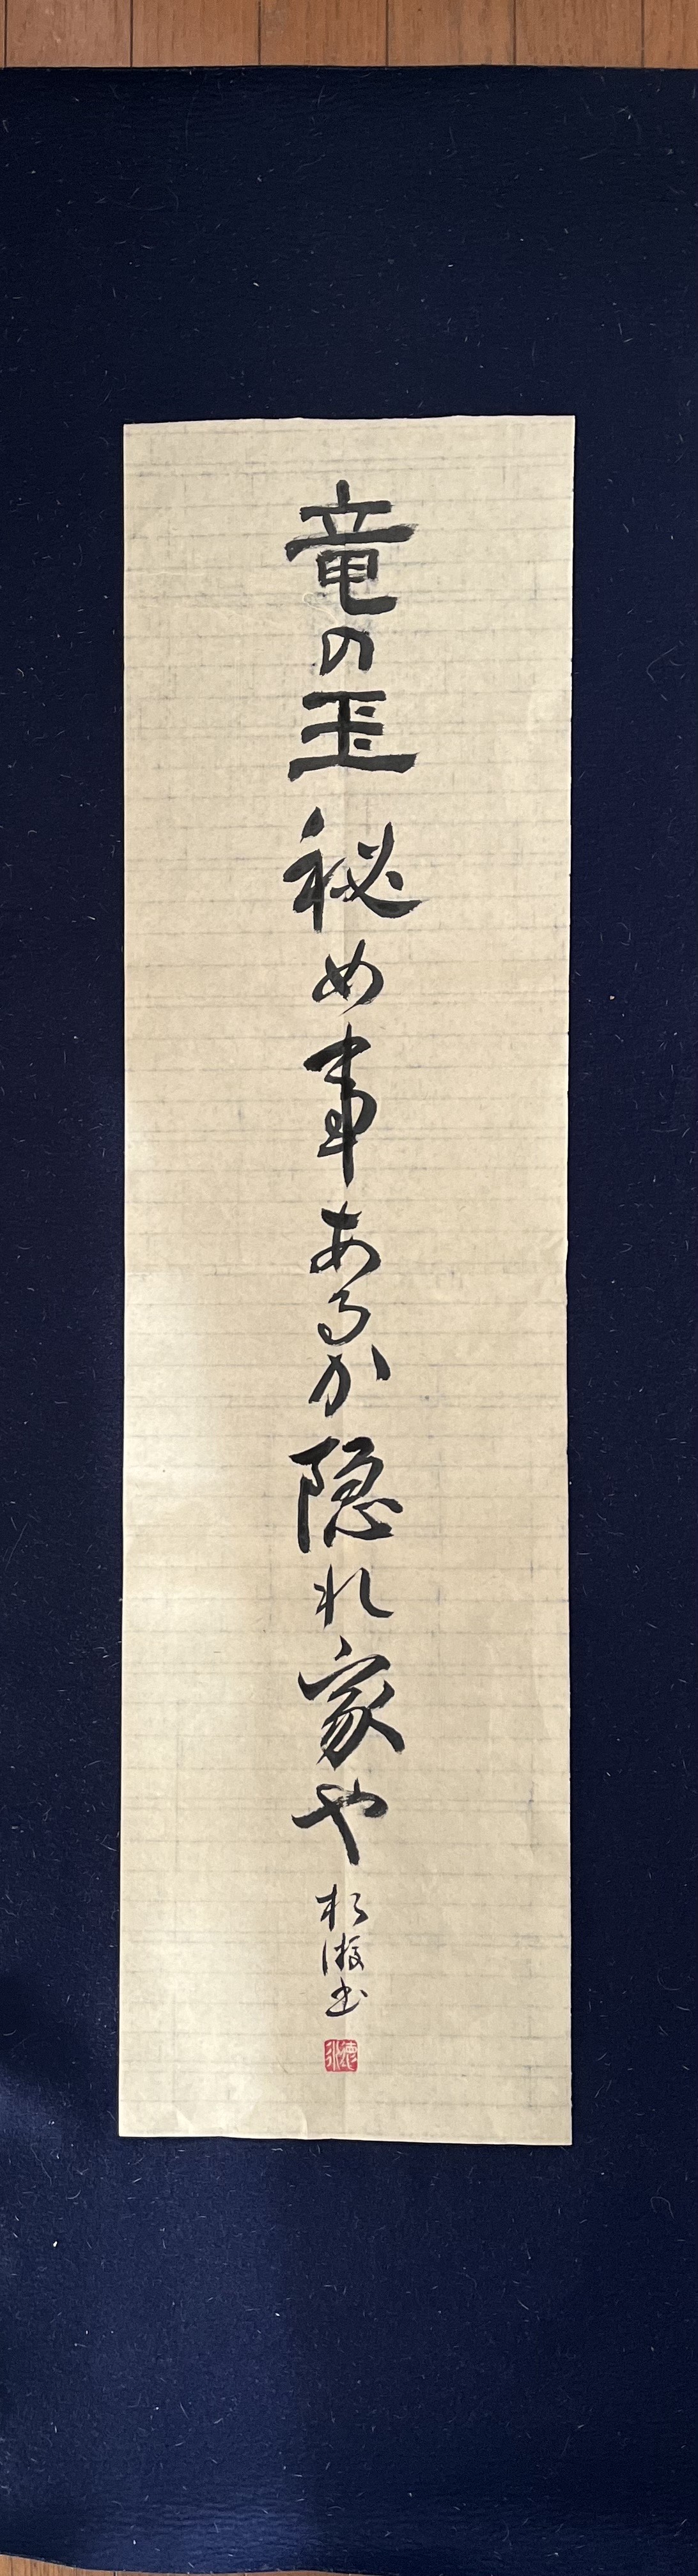 竜の玉秘め事あるか隠れ家や
書